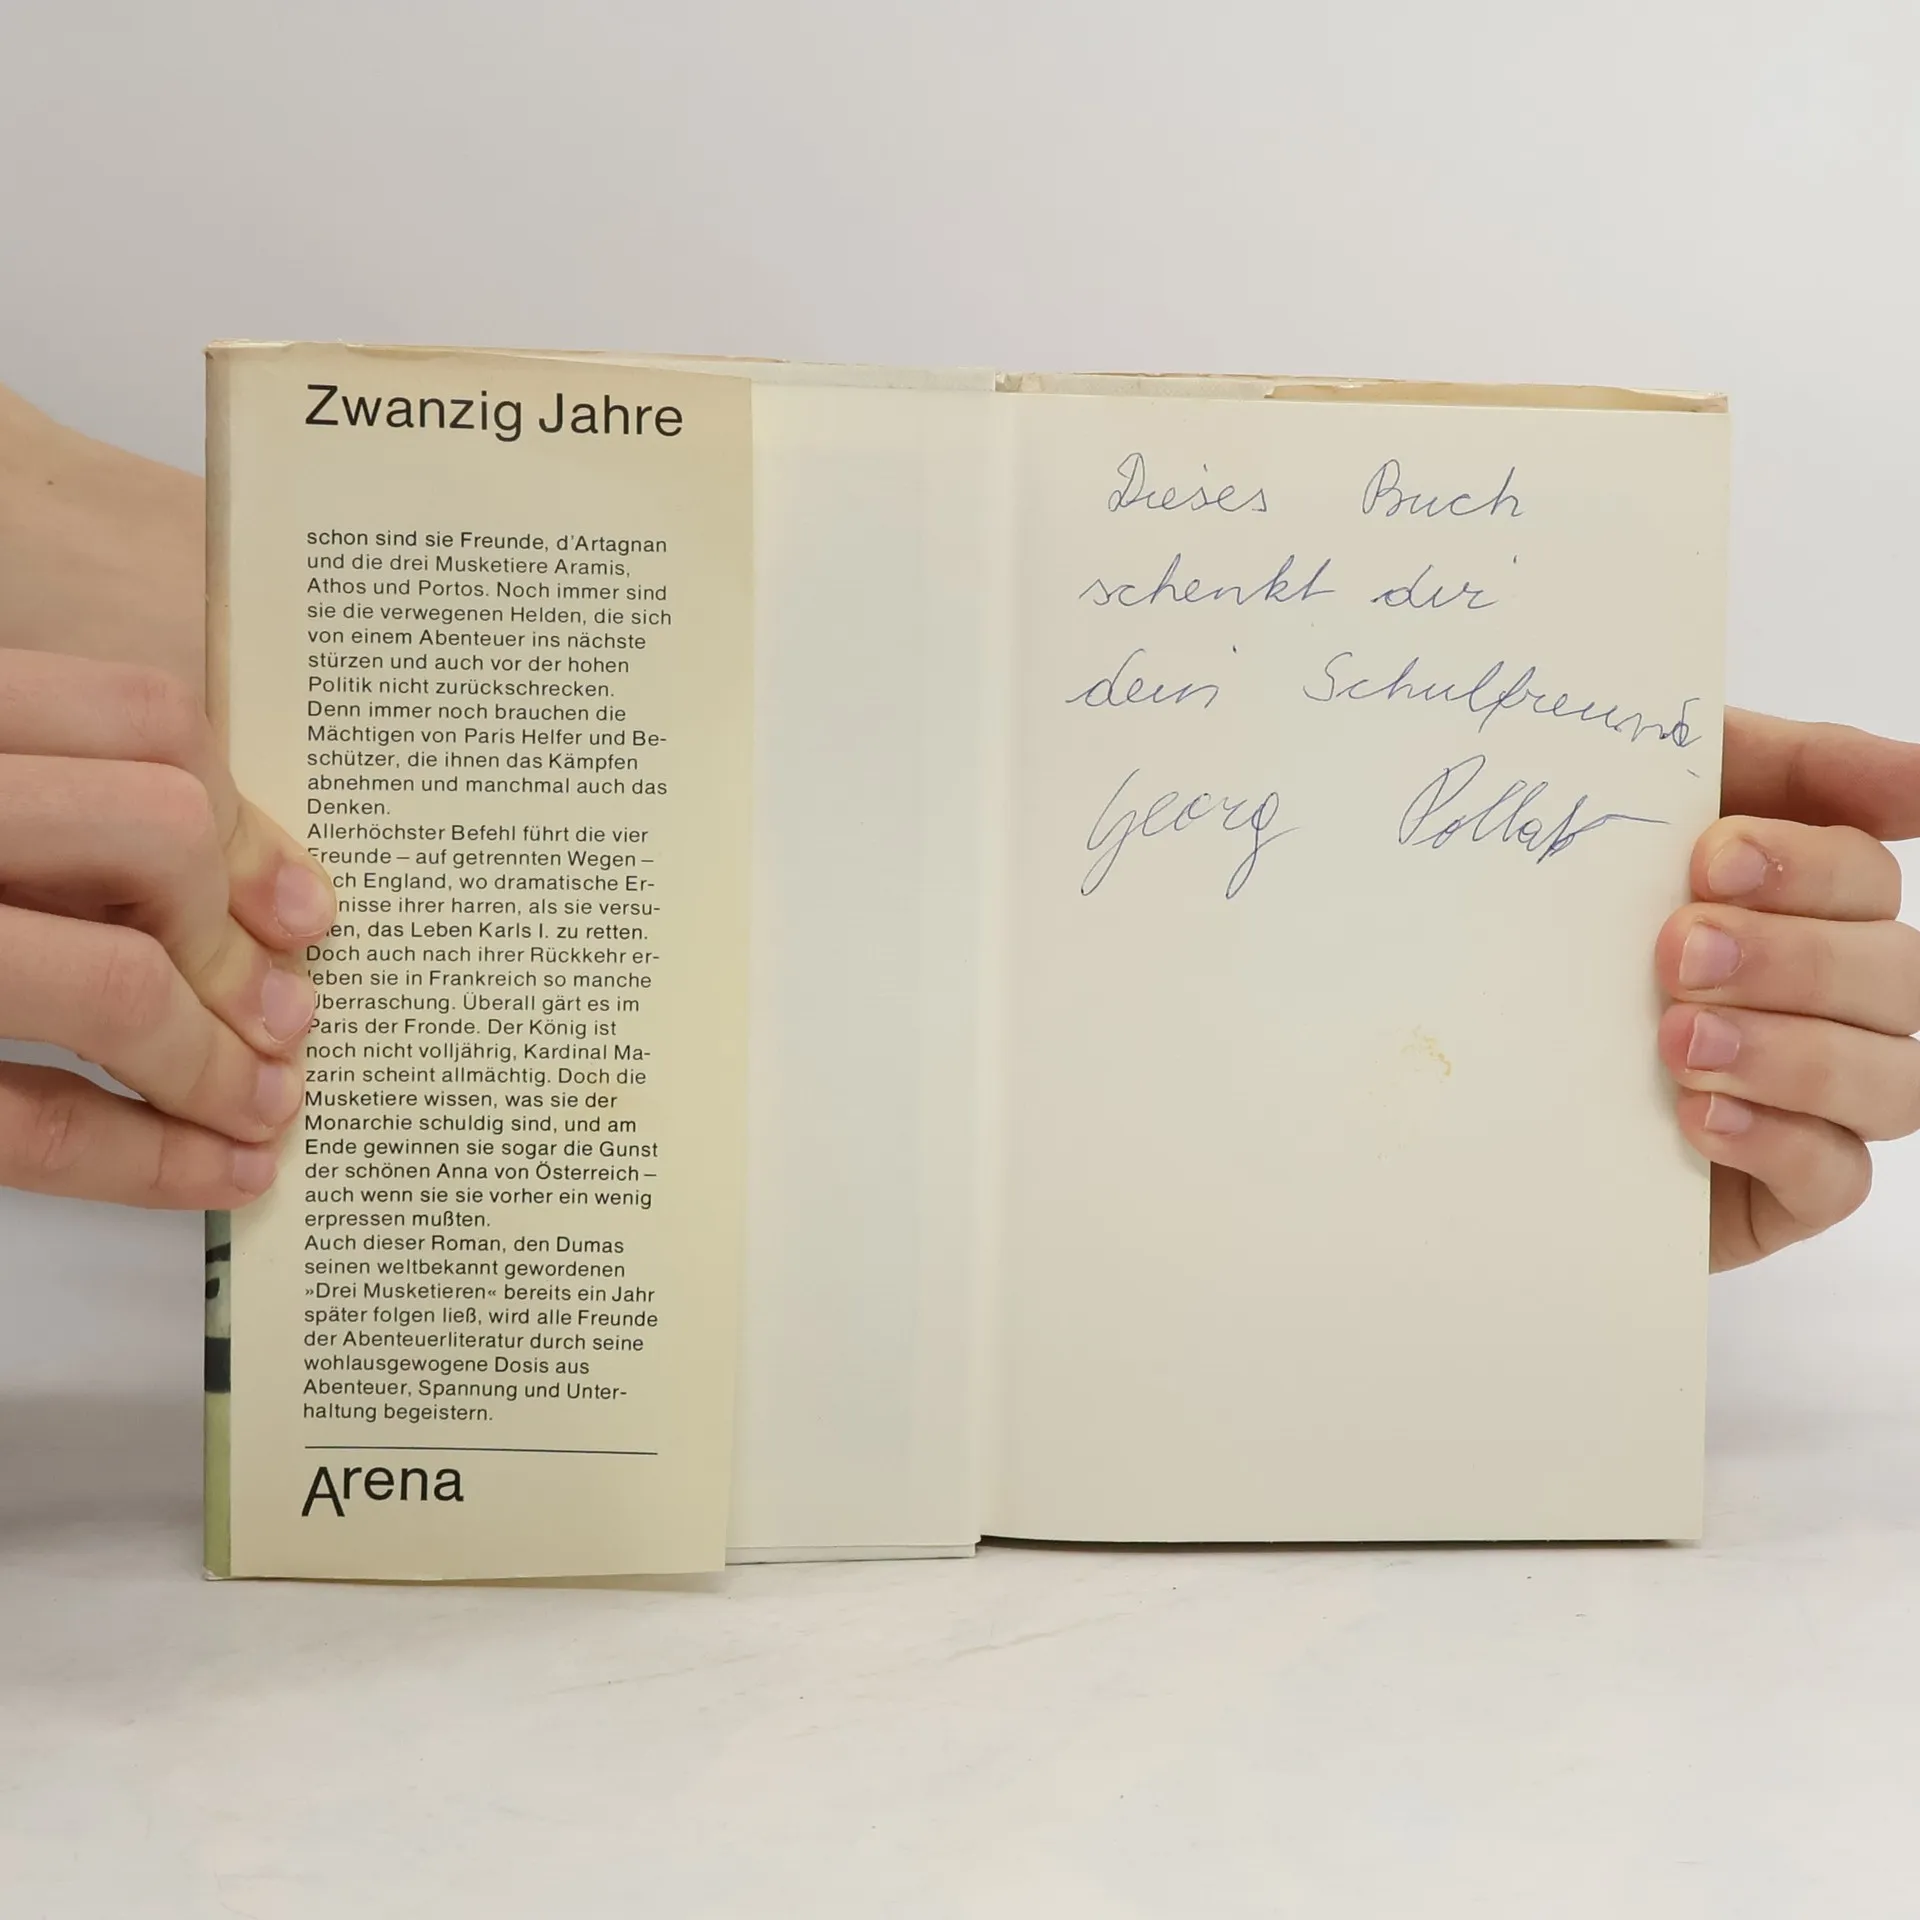 Zwanzig Jahre
schon sind sie Freunde, d'Artagnan
und die drei Musketiere Aramis,
Athos und Portos. Noch immer sind
sie die verwegenen Helden, die sich
von einem Abenteuer ins nächste
stürzen und auch vor der hohen
Politik nicht zurückschrecken.
Denn immer noch brauchen die
Mächtigen von Paris Helfer und Be-
schützer, die ihnen das Kämpfen
abnehmen und manchmal auch das
Denken.
Allerhöchster Befehl führt die vier
Freunde – auf getrennten Wegen –
ch England, wo dramatische Er-
nisse ihrer harren, als sie versu-
en, das Leben Karls I. zu retten.
Doch auch nach ihrer Rückkehr er-
leben sie in Frankreich so manche
Überraschung. Überall gärt es im
Paris der Fronde. Der König ist
noch nicht volljährig, Kardinal Ma-
zarin scheint allmächtig. Doch die
Musketiere wissen, was sie der
Monarchie schuldig sind, und am
Ende gewinnen sie sogar die Gunst
der schönen Anna von Österreich –
auch wenn sie sie vorher ein wenig
erpressen mußten.
Auch dieser Roman, den Dumas
seinen weltbekannt gewordenen
»Drei Musketieren« bereits ein Jahr
später folgen ließ, wird alle Freunde
der Abenteuerliteratur durch seine
wohlausgewogene Dosis aus
Abenteuer, Spannung und Unter-
haltung begeistern.
Arena
Dieses Buch
schenkt dir
dein Schulfreund
Georg Pollak